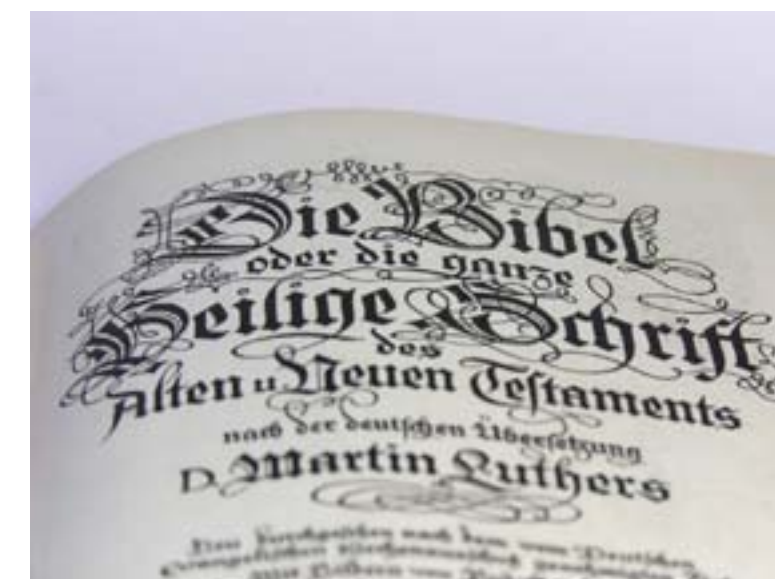 Die Bibel
oder die ganze
Heilige Schrift
des
Alten u. Neuen Testaments
nach der deutschen Übersetzung
D. Martin Luthers
Neu durchgesehen nach dem vom Deutschen
Evangelischen Kirchenausschuß genehmigten